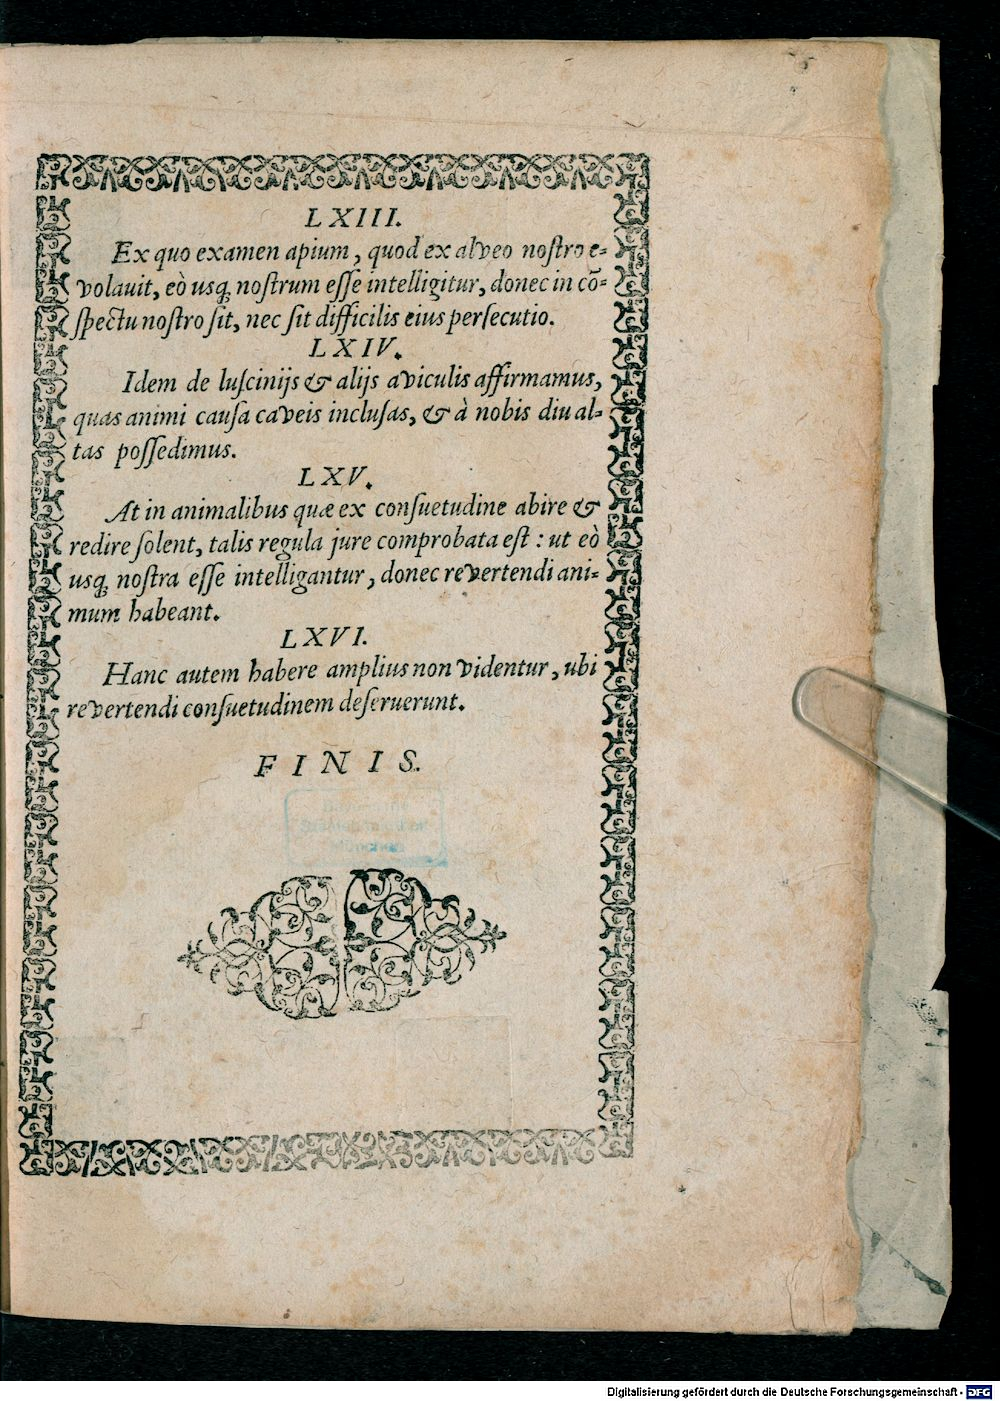 LXIII.
Ex quo examen apium, quod ex alveo nostro e-
volavit, eò usq; nostrum esse intelligitur, donec in cō-
spectu nostro sit, nec sit difficilis eius persecutio.
LXIV.
Idem de lusciniis & aliis aviculis affirmamus,
quas animi causa caveis inclusas, & à nobis diu al-
tas possedimus.
LXV.
At in animalibus quæ ex consuetudine abire &
redire solent, talis regula jure comprobata est: ut eò
usq; nostra esse intelligantur, donec revertendi ani-
mum habeant.
LXVI.
Hanc autem habere amplius non videntur, ubi
revertendi consuetudinem deseruerunt.
FINIS.
Digitalisierung gefördert durch die Deutsche Forschungsgemeinschaft - DFG